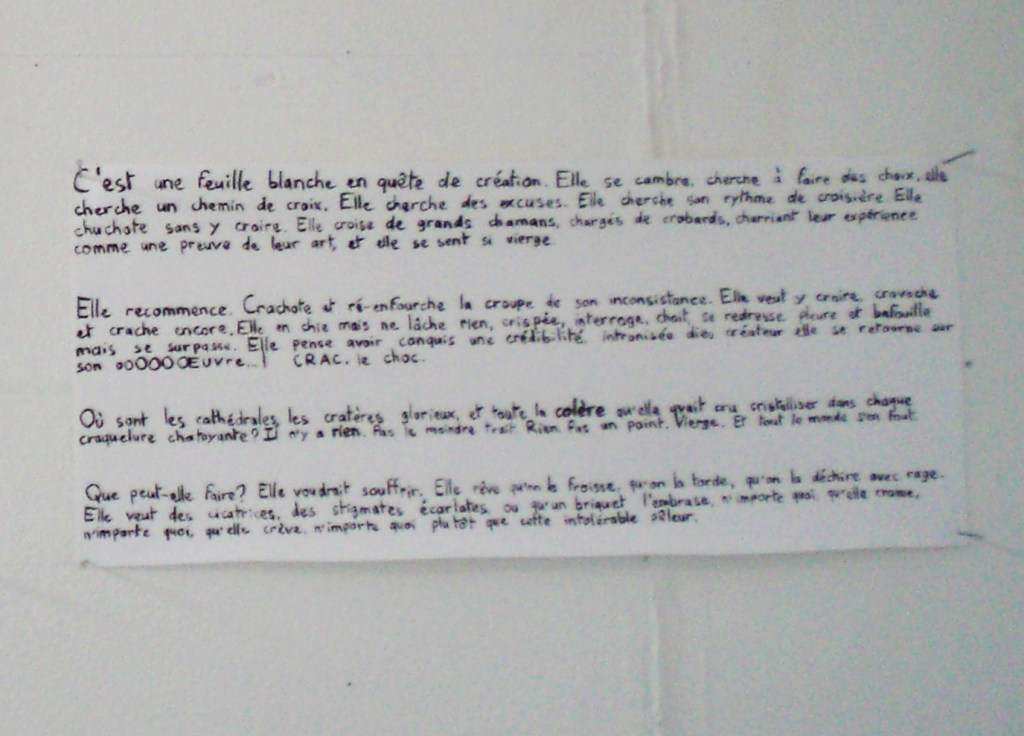 C'est une feuille blanche en quête de création. Elle se cambre, cherche à faire des choix, elle
cherche un chemin de croix. Elle cherche des excuses. Elle cherche son rythme de croisière Elle
chuchote sans y croire. Elle croise de grands chamans, chargés de crobards, charriant leur expérience
comme une preuve de leur art, et elle se sent si vierge
Elle recommence. Crachote et ré-enfourche la croupe de son inconsistance. Elle veut y croire, cravache
et crache encore. Elle en chie mais ne lâche rien, crispée, interroge, choit, se redresse pleure et bafouille
mais se surpasse. Elle pense avoir conquis une crédibilité, intronisée dieu créateur elle se retourne sur
son oOOOOŒUVRE...! CRAC. le choc.
Où sont les cathédrales, les cratères glorieux, et toute la colère qu'elle avait cru cristalliser dans chaque
craquelure chatoyante? Il n'y a rien. Pas le moindre trait Rien Pas un point. Vierge. Et tout le monde s'en fout.
Que peut-elle faire? Elle voudrait souffrir. Elle rêve qu'on la froisse, qu'on la torde, qu'on la déchire avec rage.
Elle veut des cicatrices, des stigmates écarlates, ou qu'un briquet l'embrase, n'importe quoi, qu'elle crame,
n'importe quoi, qu'elle crève, n'importe quoi plutôt que cette intolérable pâleur.